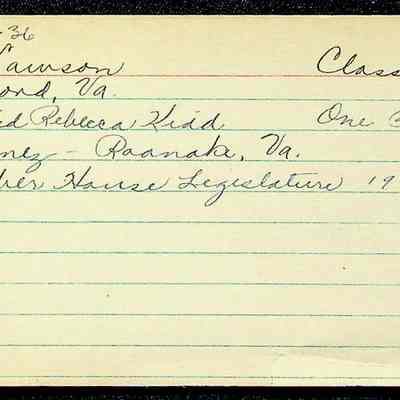 -36
Lawson Class
ord, Va.
ed Rebecca Kidd One
nez - Roanoke, Va.
ber House Legislature 19